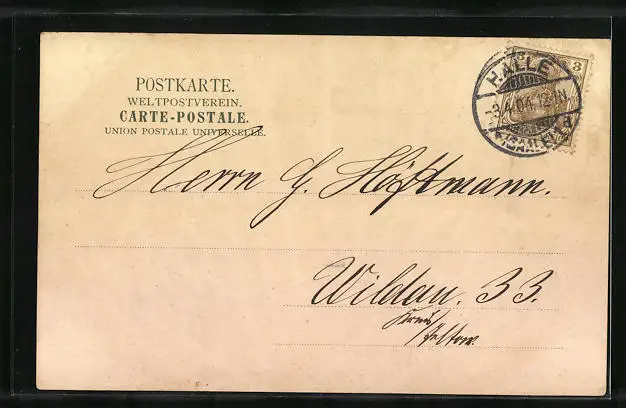 POSTKARTE.
WELTPOSTVEREIN.
CARTE-POSTALE.
UNION POSTALE UNIVERSELLE.
3
HALLE
-3.4.04.12-1N
(SAALE)
Herrn G. Höftmann.
Wildau. 33.
Kreis
Teltow.